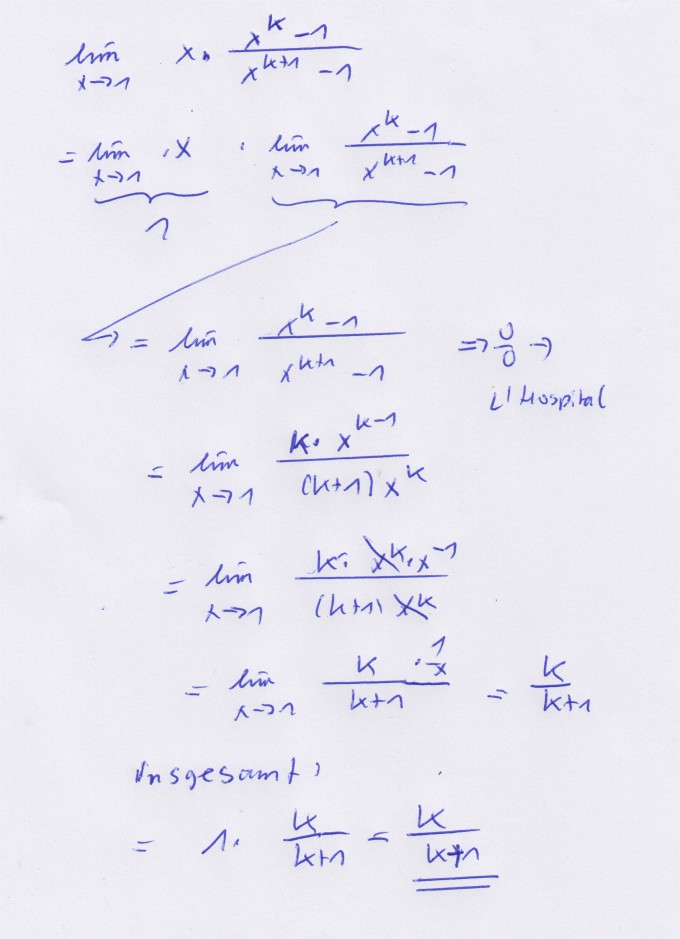 lim x→1 x · (x^k − 1)/(x^(k+1) − 1)
= lim x→1 · x · lim x→1 (x^k − 1)/(x^(k+1) − 1)
1
→ = lim x→1 (x^k − 1)/(x^(k+1) − 1) ⇒ 0/0 →
L'Hospital
= lim x→1 (k · x^(k−1))/((k+1) x^k)
= lim x→1 (k · x^k · x^−1)/((k+1) x^k)
= lim x→1 k/(k+1) · 1/x = k/(k+1)
Insgesamt:
= 1 · k/(k+1) = k/(k+1)